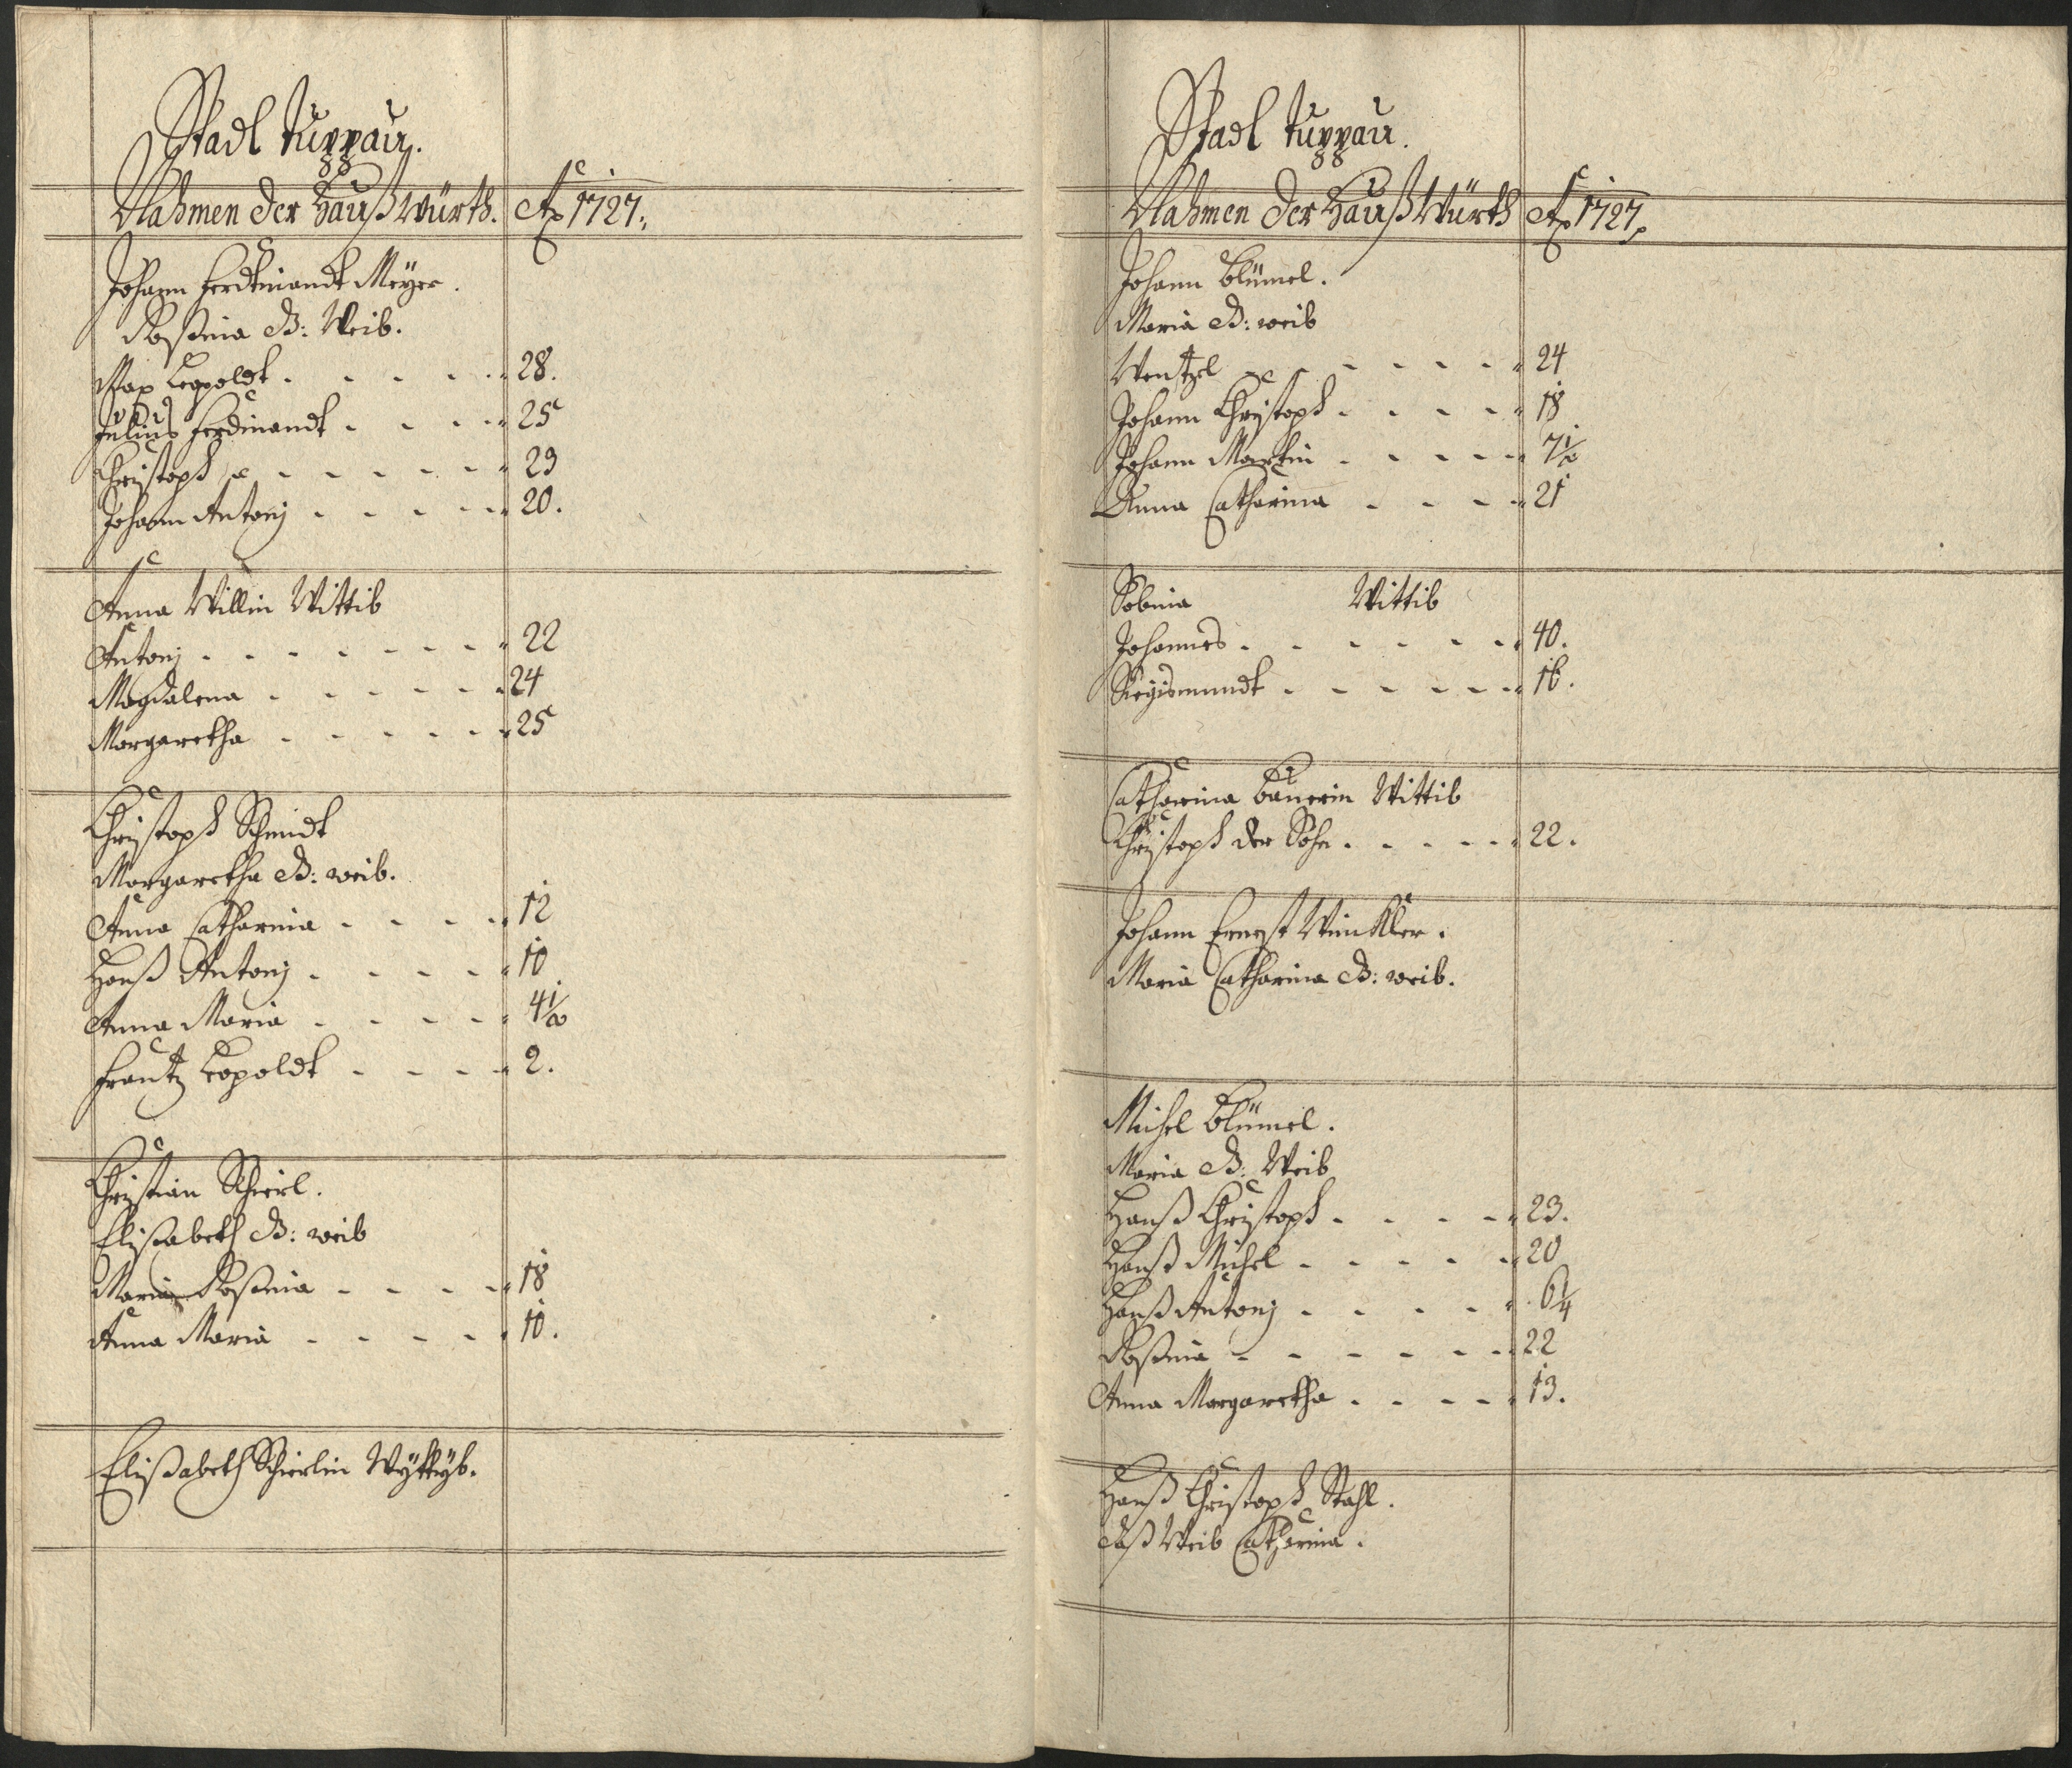 Stadl Tuppau.
Nahmen der Hauß Würth. Ao 1727.
Johann Ferdtinandt Meyer.
Rosina B: Weib.
Max Leopoldt. - - - - 28.
Julius Ferdinandt - - - - 25
Christoph - - - - - 23
Johann Antonj - - - - - 20.
Anna Willin Wittib
Antonj - - - - - - - 22
Magdalena - - - - - - 24
Margaretha - - - - - - 25
Christoph Schmidt
Margaretha B: weib.
Anna Catharina - - - - 12
Hanß Antonj - - - - - 10
Anna Maria - - - - - 4 1/2
Frantz Leopoldt - - - - 2.
Christian Schierl.
Elisabeth B: weib
Maria Rosina - - - - 18
Anna Maria - - - - - 10.
Elißabeth Schierlin Wyttyb.
Stadl Tuppau.
Nahmen der Hauß Würth Ao 1727.
Johann Blümel.
Maria B: weib
Wentzel - - - - - - 24
Johann Christoph - - - - 18
Johann Martin - - - - - 7 1/2
Anna Catharina - - - - 21
Sabina Wittib
Johannes - - - - - - 40.
Siegismundt - - - - - - 16.
Catharina Bauerin Wittib
Christoph der Sohn - - - - - 22.
Johann Ernst Winkller.
Maria Catharina B: weib.
Michel Blümel.
Maria B: Weib
Hanß Christoph - - - - - 23.
Hanß Michel - - - - - 20
Hanß Antonj - - - - - 6 1/4
Rosina - - - - - - - 22
Anna Margaretha - - - - 13.
Hanß Christoph Stahl.
daß Weib Catharina.